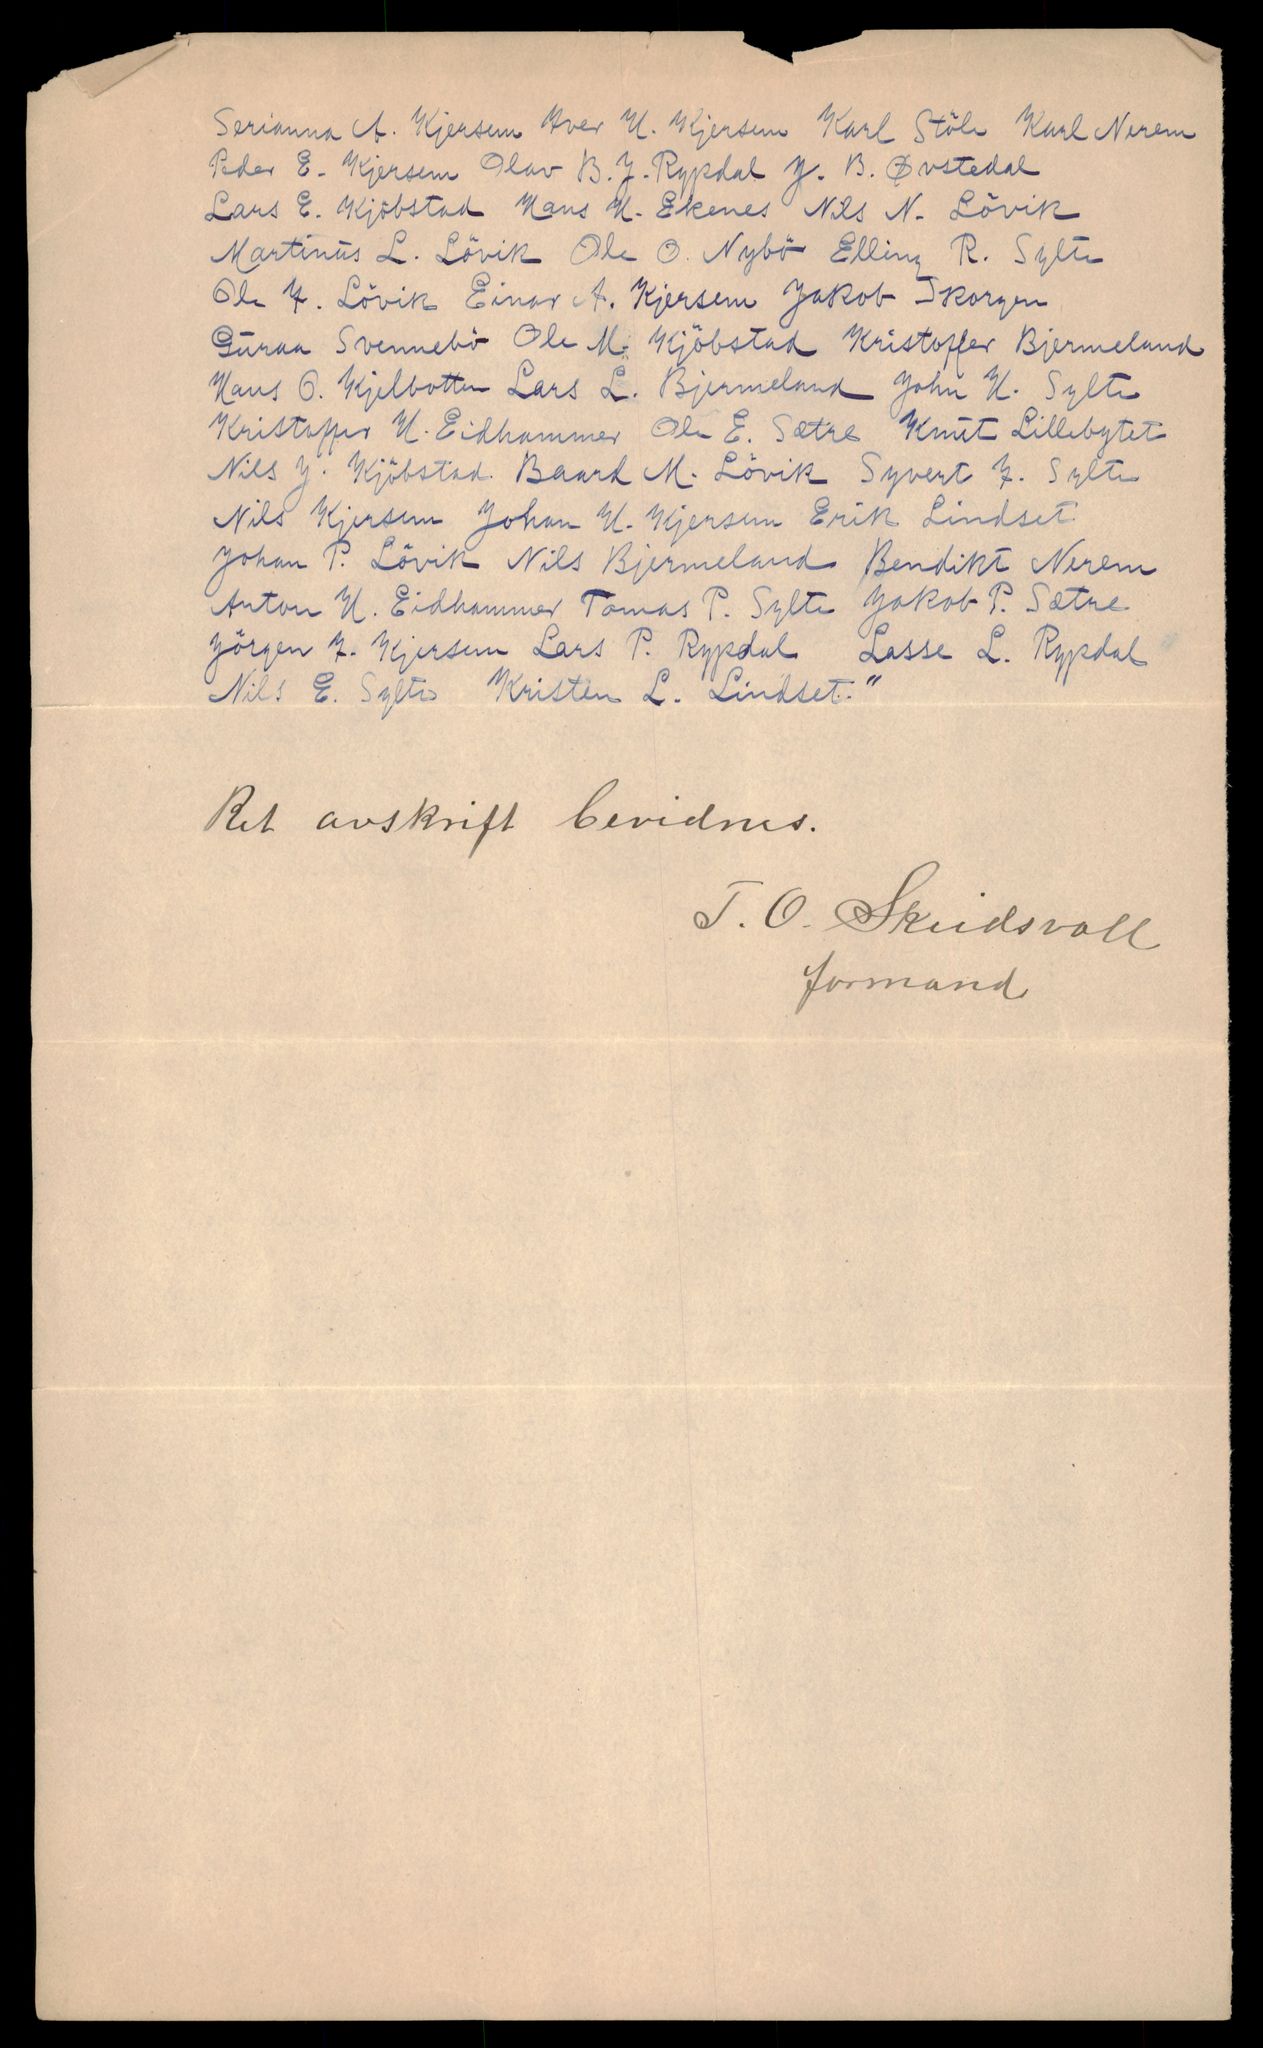 Serianna A. Kjersem Iver H. Kjersem Karl Stöle Karl Nerem
Peder E. Kjersem Olav B. J. Rypdal J. B. Øvstedal
Lars E. Kjöbstad Hans H. Ekenes Nils N. Lövik
Martinus L. Lövik Ole O. Nybö Elling R. Sylte
Ole I. Lövik Einar A. Kjersem Jakob Skorgen
Guraa Svennebö Ole M. Kjöbstad Kristoffer Bjermeland
Hans O. Kjelbotten Lars L. Bjermeland John H. Sylte
Kristoffer H. Eidhammer Ole E. Sætre Knut Lillebytet
Nils J. Kjöbstad. Baard M. Lövik Syvert I. Sylte
Nils Kjersem Johan H. Kjersem Erik Lindset
Johan P. Lövik Nils Bjermeland Bendikt Nerem
Anton H. Eidhammer Tomas P. Sylte Jakob P. Sætre
Jörgen I. Kjersem Lars P. Rypdal Lasse L. Rypdal
Nils E. Sylte Kristen L. Lindset."
Ret avskrift bevidnes.
T. O. Skeidsvoll
formand